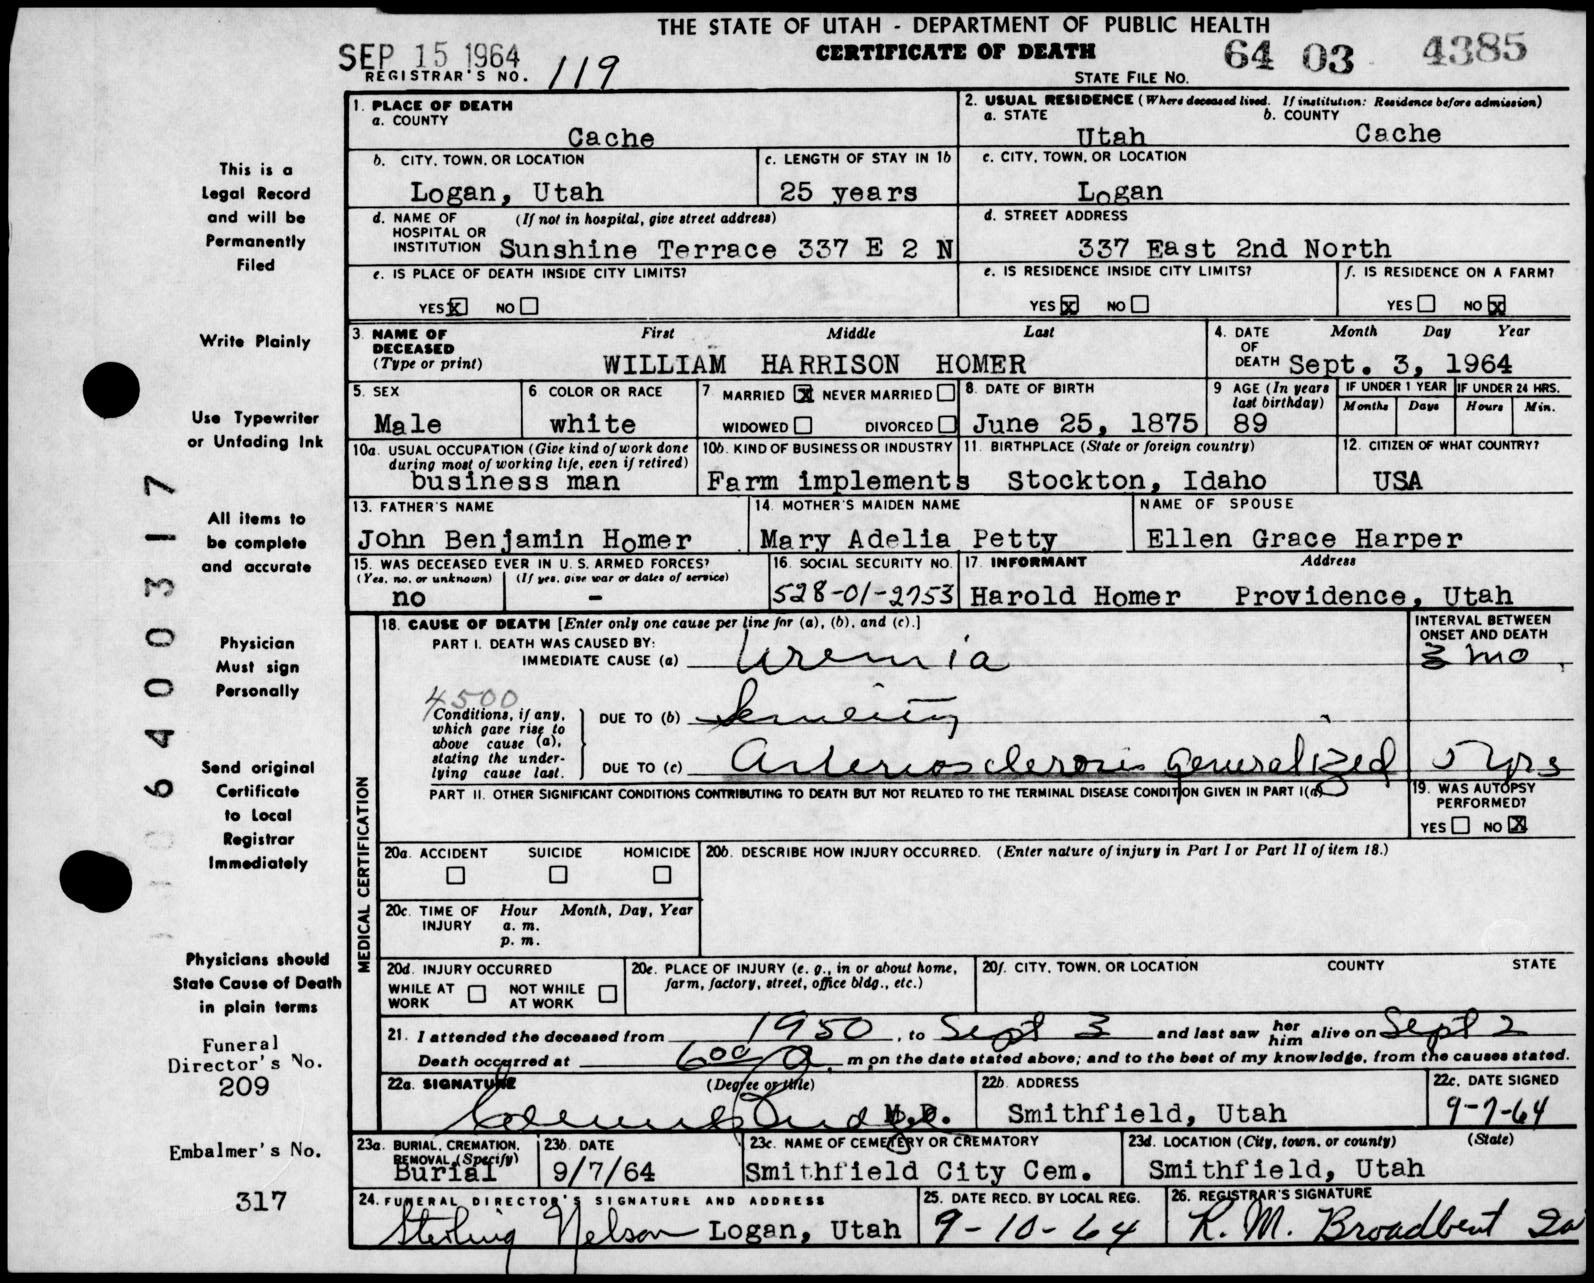 THE STATE OF UTAH - DEPARTMENT OF PUBLIC HEALTH
CERTIFICATE OF DEATH
SEP 15 1964
REGISTRAR'S NO. 119
STATE FILE NO. 64 03 4385
1. PLACE OF DEATH
a. COUNTY
Cache
2. USUAL RESIDENCE (Where deceased lived. If institution: Residence before admission)
a. STATE b. COUNTY
Utah Cache
b. CITY, TOWN, OR LOCATION
Logan, Utah
c. LENGTH OF STAY IN 1b
25 years
c. CITY, TOWN, OR LOCATION
Logan
d. NAME OF HOSPITAL OR INSTITUTION (If not in hospital, give street address)
Sunshine Terrace 337 E 2 N
d. STREET ADDRESS
337 East 2nd North
e. IS PLACE OF DEATH INSIDE CITY LIMITS?
YES X NO
e. IS RESIDENCE INSIDE CITY LIMITS?
YES X NO
f. IS RESIDENCE ON A FARM?
YES NO X
3. NAME OF DECEASED (Type or print)
First Middle Last
WILLIAM HARRISON HOMER
4. DATE OF DEATH Month Day Year
Sept. 3, 1964
5. SEX
Male
6 COLOR OR RACE
white
7 MARRIED X NEVER MARRIED
WIDOWED DIVORCED
8. DATE OF BIRTH
June 25, 1875
9 AGE (In years last birthday)
89
IF UNDER 1 YEAR
Months Days
IF UNDER 24 HRS.
Hours Min.
10a. USUAL OCCUPATION (Give kind of work done during most of working life, even if retired)
business man
10b. KIND OF BUSINESS OR INDUSTRY
Farm implements
11. BIRTHPLACE (State or foreign country)
Stockton, Idaho
12. CITIZEN OF WHAT COUNTRY?
USA
13. FATHER'S NAME
John Benjamin Homer
14. MOTHER'S MAIDEN NAME
Mary Adelia Petty
NAME OF SPOUSE
Ellen Grace Harper
15. WAS DECEASED EVER IN U. S. ARMED FORCES?
(Yes, no, or unknown) (If yes, give war or dates of service)
no -
16. SOCIAL SECURITY NO.
528-01-2753
17. INFORMANT Address
Harold Homer Providence, Utah
MEDICAL CERTIFICATION
18. CAUSE OF DEATH [Enter only one cause per line for (a), (b), and (c).]
INTERVAL BETWEEN ONSET AND DEATH
PART I. DEATH WAS CAUSED BY:
IMMEDIATE CAUSE (a) Uremia 3 mo.
4500
Conditions, if any, which gave rise to above cause (a), stating the underlying cause last.
DUE TO (b) Senility
DUE TO (c) Arteriosclerosis generalized 5 yrs
PART II. OTHER SIGNIFICANT CONDITIONS CONTRIBUTING TO DEATH BUT NOT RELATED TO THE TERMINAL DISEASE CONDITION GIVEN IN PART I(a)
19. WAS AUTOPSY PERFORMED?
YES NO X
20a. ACCIDENT SUICIDE HOMICIDE
20b. DESCRIBE HOW INJURY OCCURRED. (Enter nature of injury in Part I or Part II of item 18.)
20c. TIME OF INJURY Hour Month, Day, Year
a. m.
p. m.
20d. INJURY OCCURRED
WHILE AT WORK NOT WHILE AT WORK
20e. PLACE OF INJURY (e. g., in or about home, farm, factory, street, office bldg., etc.)
20f. CITY, TOWN, OR LOCATION COUNTY STATE
21. I attended the deceased from 1950, to Sept 3 and last saw her him alive on Sept 2
Death occurred at 600 a. m on the date stated above; and to the best of my knowledge, from the causes stated.
22a. SIGNATURE (Degree or title)
M.D.
22b. ADDRESS
Smithfield, Utah
22c. DATE SIGNED
9-7-64
23a. BURIAL, CREMATION, REMOVAL (Specify)
Burial
23b. DATE
9/7/64
23c. NAME OF CEMETERY OR CREMATORY
Smithfield City Cem.
23d. LOCATION (City, town, or county) (State)
Smithfield, Utah
24. FUNERAL DIRECTOR'S SIGNATURE AND ADDRESS
Sterling Nelson Logan, Utah
25. DATE RECD. BY LOCAL REG.
9-10-64
26. REGISTRAR'S SIGNATURE
R. M. Broadbent
This is a
Legal Record
and will be
Permanently
Filed
Write Plainly
Use Typewriter
or Unfading Ink
All items to
be complete
and accurate
Physician
Must sign
Personally
Send original
Certificate
to Local
Registrar
Immediately
Physicians should
State Cause of Death
in plain terms
Funeral
Director's No.
209
Embalmer's No.
317
06400317